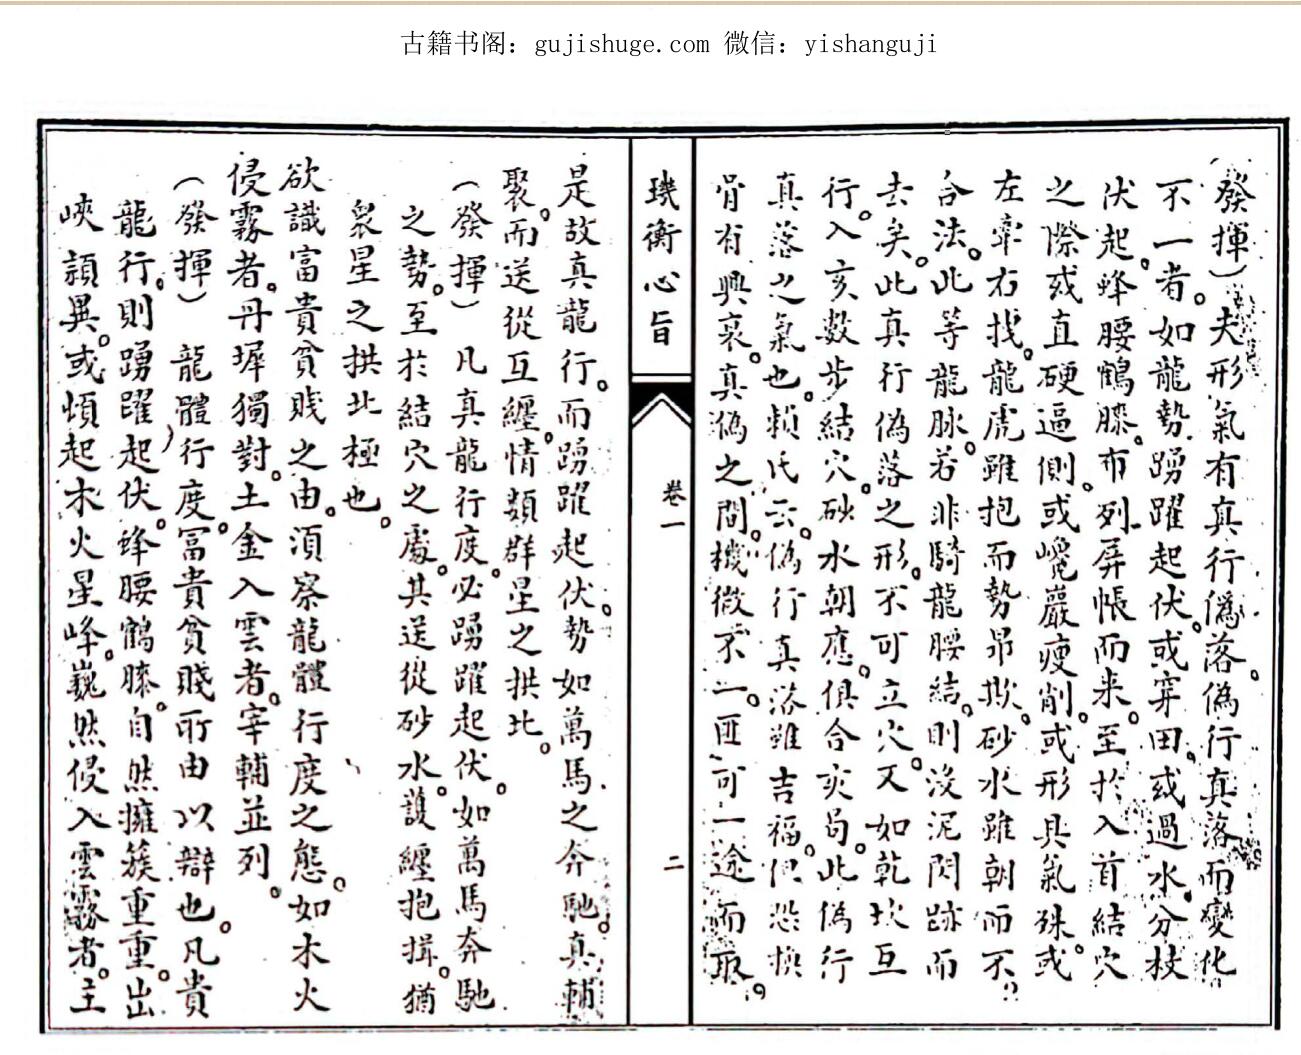 古籍书阁：gujishuge.com 微信：yishanguji
（發揮）夫形氣有真行偽落。偽行真落而變化
不一者。如龍勢踴躍起伏。或穿田。或過水。分枝
伏起。蜂腰鶴膝。布列屏帳而来。至於入首結穴
之際。或直硬逼側。或巉巖瘦削。或形具氣殊。或
左牽右找。龍虎雖抱而勢昂欺。砂水雖朝而不
合法。此等龍脉。若非騎龍腰結。則沒泥閃跡而
去矣。此真行偽落之形。不可立穴。又如乾坎亙
行。入亥數步結穴。砂水朝應。俱合亥局。此偽行
真落之氣也。賴氏云。偽行真落雖吉福。但恐換
骨有興衰。真偽之間。機微不一。匪可一途而取。
璣衡心旨
卷一
二
是故真龍行。而踴躍起伏。勢如萬馬之奔馳。真輔
聚。而送從互纏。情類群星之拱北。
（發揮）凡真龍行度。必踴躍起伏。如萬馬奔馳
之勢。至於結穴之處。其送從砂水。護纏抱揖。猶
衆星之拱北極也。
欲識富貴貧賤之由。須察龍體行度之態。如木火
侵霧者。丹墀獨對。土金入雲者。宰輔並列。
（發揮）龍體行度。富貴貧賤所由以辯也。凡貴
龍行。則踴躍起伏。蜂腰鶴膝。自然擁簇重重。出
峽頴異。或頓起木火星峰。巍然侵入雲霧者。主